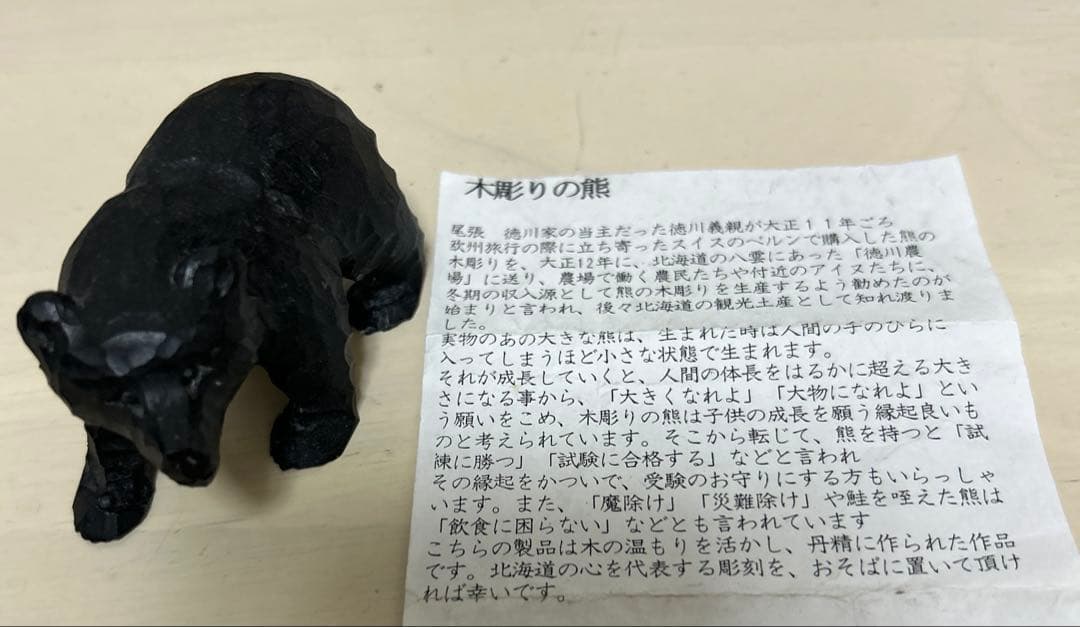 木彫りの熊
尾張　徳川家の当主だった徳川義親が大正１１年ごろ
欧州旅行の際に立ち寄ったスイスのベルンで購入した熊の
木彫りを、大正12年に、北海道の八雲にあった「徳川農
場」に送り、農場で働く農民たちや付近のアイヌたちに、
冬期の収入源として熊の木彫りを生産するよう勧めたのが
始まりと言われ、後々北海道の観光土産として知れ渡りま
した。
実物のあの大きな熊は、生まれた時は人間の手のひらに
入ってしまうほど小さな状態で生まれます。
それが成長していくと、人間の体長をはるかに超える大き
さになる事から、「大きくなれよ」「大物になれよ」とい
う願いをこめ、木彫りの熊は子供の成長を願う縁起良いも
のと考えられています。そこから転じて、熊を持つと「試
練に勝つ」「試験に合格する」などと言われ
その縁起をかついで、受験のお守りにする方もいらっしゃ
います。また、「魔除け」「災難除け」や鮭を咥えた熊は
「飲食に困らない」などとも言われています
こちらの製品は木の温もりを活かし、丹精に作られた作品
です。北海道の心を代表する彫刻を、おそばに置いて頂け
れば幸いです。